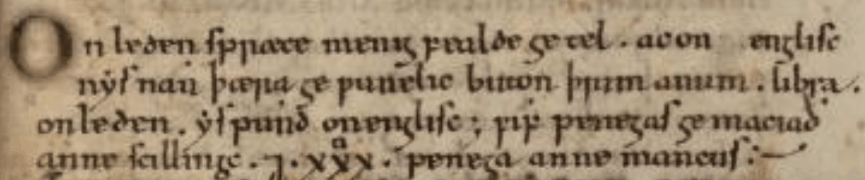 On leden spræce menig feald getel . ac on englisc
nẏs nan þæra gepunelic buton þrim anum . libra .
onleden . ẏs pund onenglisc ; fif penegas gemaciað
ænne scillingc . ⁊ . xxx . penega ænne mancus :